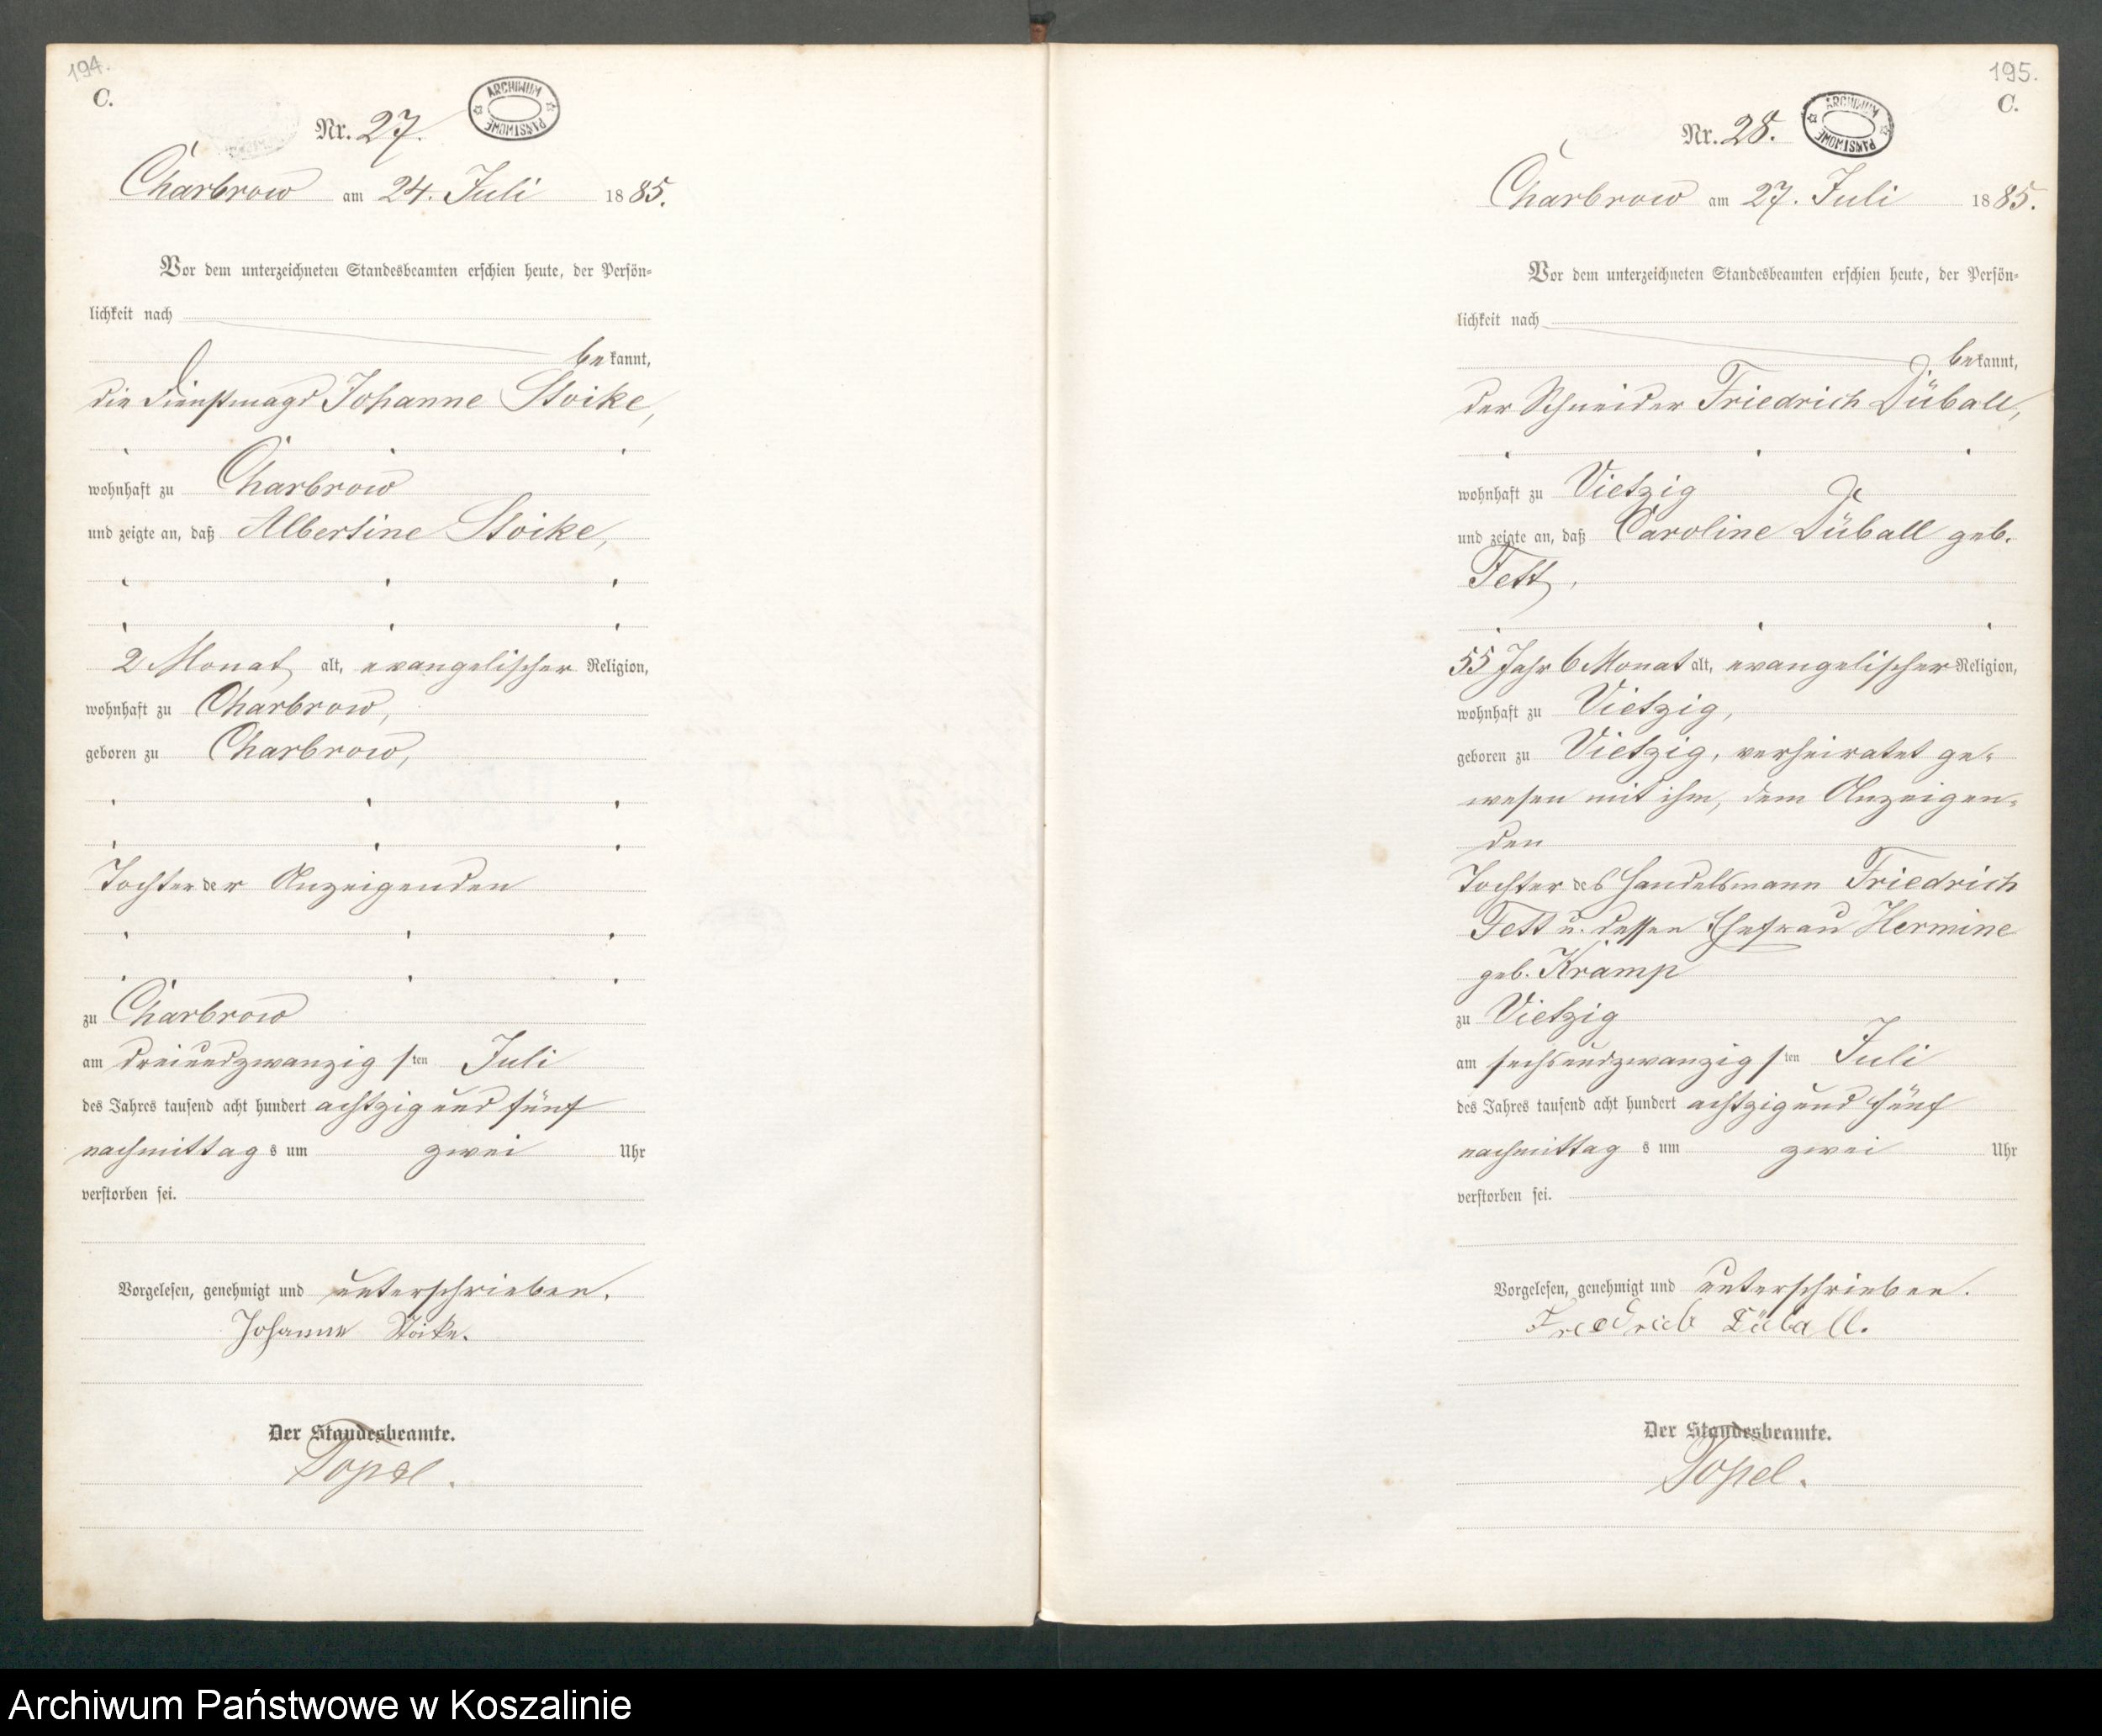 194.
C.
ARCHIWUM PAŃSTWOWE
Nr. 27.
Charbrow am 24. Juli 1885.
Vor dem unterzeichneten Standesbeamten erschien heute, der Persön=
lichkeit nach
bekannt,
die Dienstmagd Johanne Stoike,
wohnhaft zu Charbrow
und zeigte an, daß Albertine Stoike,
2 Monat alt, evangelischer Religion,
wohnhaft zu Charbrow,
geboren zu Charbrow,
Tochter der Anzeigenden
zu Charbrow
am dreiundzwanzigsten Juli
des Jahres tausend acht hundert achtzig und fünf
nachmittags um zwei Uhr
verstorben sei.
Vorgelesen, genehmigt und unterschrieben.
Johanne Stoike.
Der Standesbeamte.
Topel.
195.
C.
ARCHIWUM PAŃSTWOWE
Nr. 28.
Charbrow am 27. Juli 1885.
Vor dem unterzeichneten Standesbeamten erschien heute, der Persön=
lichkeit nach
bekannt,
der Schneider Friedrich Düball,
wohnhaft zu Vietzig
und zeigte an, daß Caroline Düball geb.
Fett,
55 Jahr 6 Monat alt, evangelischer Religion,
wohnhaft zu Vietzig,
geboren zu Vietzig, verheiratet ge=
wesen mit ihm, dem Anzeigen=
den
Tochter des Handelsmann Friedrich
Fett u. dessen Ehefrau Hermine
geb. Kramp
zu Vietzig
am sechsundzwanzigsten Juli
des Jahres tausend acht hundert achtzig und fünf
nachmittags um zwei Uhr
verstorben sei.
Vorgelesen, genehmigt und unterschrieben.
Friedrich Düball.
Der Standesbeamte.
Topel.
Archiwum Państwowe w Koszalinie